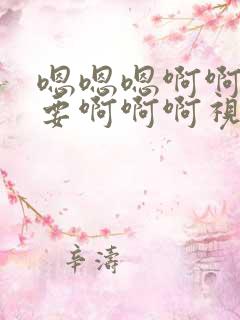 嗯嗯嗯啊啊
要啊啊啊视
辛濤